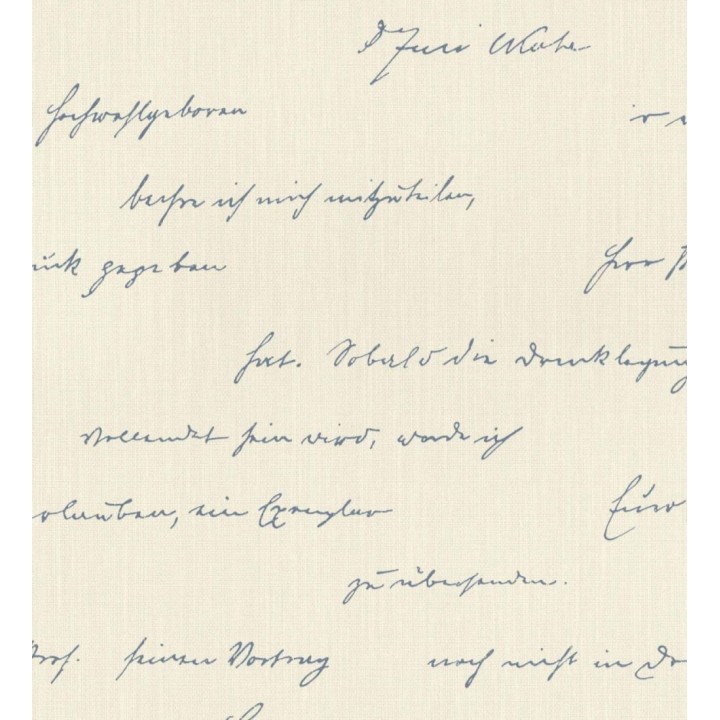 Hochwohlgeboren
beehre ich mich mitzuteilen,
gegeben
Herr
hat. Sobald die Drucklegung
vollendet sein wird, werde ich
ein Exemplar
Euro
zu übersenden.
Prof. seinen Vortrag noch nicht in